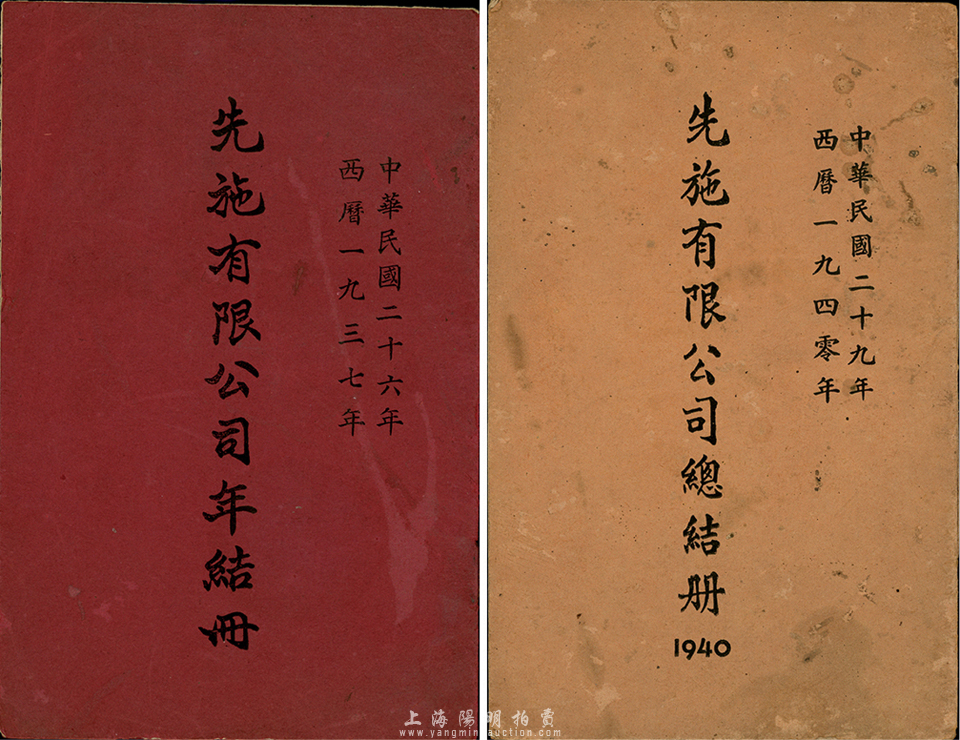 中華民國二十六年
西曆一九三七年
先施有限公司年結冊
中華民國二十九年
西曆一九四零年
先施有限公司總結册
1940
上海陽明拍賣
www.yangmingauction.com